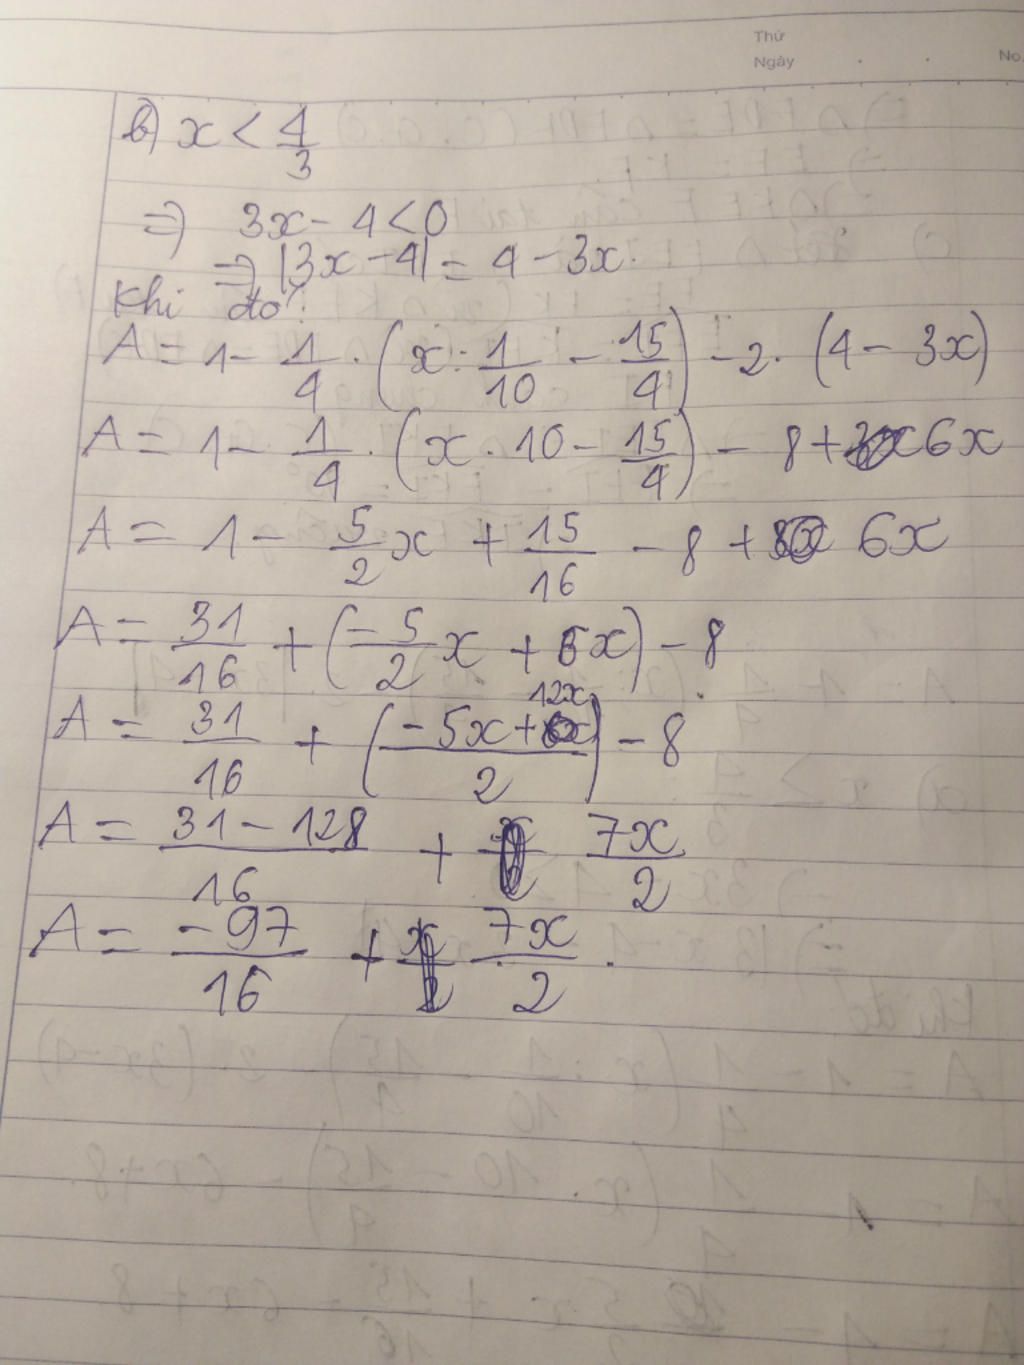 Thứ
Ngày
No.
b) x < 4/3
=) 3x - 4 < 0
=) |3x - 4| = 4 - 3x.
Khi đó:
A = 1 - 1/4 . (x : 1/10 - 15/4) - 2 . (4 - 3x)
A = 1 - 1/4 . (x . 10 - 15/4) - 8 + 6x
A = 1 - 5/2 x + 15/16 - 8 + 6x
A = 31/16 + (-5/2 x + 6x) - 8
A = 31/16 + (-5x + 12x / 2) - 8
A = 31 - 128 / 16 + 7x/2
A = -97/16 + 7x/2 .